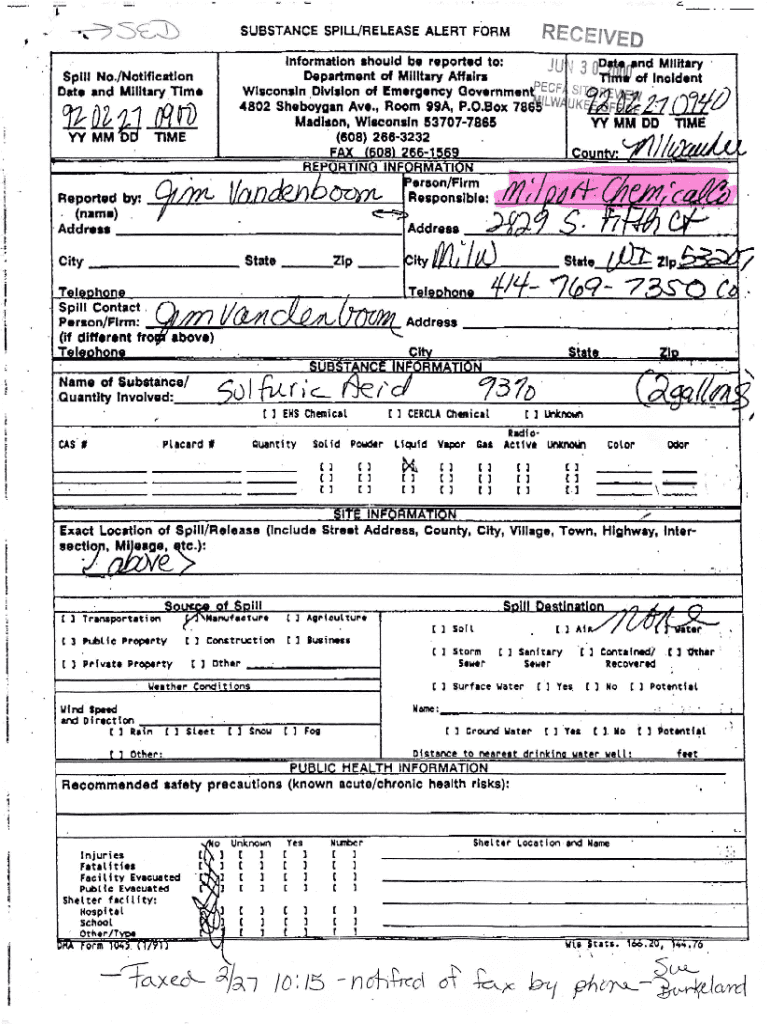 →SED
SUBSTANCE SPILL/RELEASE ALERT FORM
RECEIVED
JUN 30 2000
PECFA SITE REVIEW
MILWAUKEE OFFICE
Spill No./Notification
Date and Military Time
92 02 27 0900
YY MM DD TIME
Information should be reported to:
Department of Military Affairs
Wisconsin Division of Emergency Government
4802 Sheboygan Ave., Room 99A, P.O.Box 7865
Madison, Wisconsin 53707-7865
(608) 266-3232
FAX (608) 266-1569
Date and Military
Time of Incident
92 02 27 0940
YY MM DD TIME
County: Milwaukee
REPORTING INFORMATION
Reported by: Jim Vandenboom
(name)
Address
City State Zip
Telephone
Person/Firm
Responsible: Milport Chemical Co
Address 2829 S. Fifth Ct
City Milw State WI Zip 53207
Telephone 414-769-7350 Co.
Spill Contact
Person/Firm: Jim Vandenboom Address
(if different from above)
Telephone City State Zip
SUBSTANCE INFORMATION
Name of Substance/
Quantity Involved: Sulfuric Acid 93% (2 gallons)
[ ] EHS Chemical [ ] CERCLA Chemical [ ] Unknown
CAS # Placard # Quantity Solid Powder Liquid Vapor Gas Radio-Active Unknown Color Odor
[ ] [ ] [X] [ ] [ ] [ ] [ ]
[ ] [ ] [ ] [ ] [ ] [ ] [ ]
[ ] [ ] [ ] [ ] [ ] [ ] [ ]
SITE INFORMATION
Exact Location of Spill/Release (Include Street Address, County, City, Village, Town, Highway, Inter-
section, Mileage, etc.):
<above>
Source of Spill
[ ] Transportation [✓] Manufacture [ ] Agriculture
[ ] Public Property [ ] Construction [ ] Business
[ ] Private Property [ ] Other
Weather Conditions
Wind Speed
and Direction
[ ] Rain [ ] Sleet [ ] Snow [ ] Fog
[ ] Other:
Spill Destination
None
[ ] Soil [ ] Air [ ] Water
[ ] Storm Sewer [ ] Sanitary Sewer [ ] Contained/Recovered [ ] Other
[ ] Surface Water [ ] Yes [ ] No [ ] Potential
Name:
[ ] Ground Water [ ] Yes [ ] No [ ] Potential
Distance to nearest drinking water well: feet
PUBLIC HEALTH INFORMATION
Recommended safety precautions (known acute/chronic health risks):
No Unknown Yes Number Shelter Location and Name
Injuries [ ] [ ] [ ] [ ]
Fatalities [ ] [ ] [ ] [ ]
Facility Evacuated [ ] [ ] [ ] [ ]
Public Evacuated [ ] [ ] [ ] [ ]
Shelter facility:
Hospital [ ] [ ] [ ] [ ]
School [ ] [ ] [ ] [ ]
Other/Type [ ] [ ] [ ] [ ]
DMA Form 1045 (1/91) Wis Stats. 166.20, 144.76
-Faxed 2/27 10:15 - notified of fax by phone - Sue
Burkeland